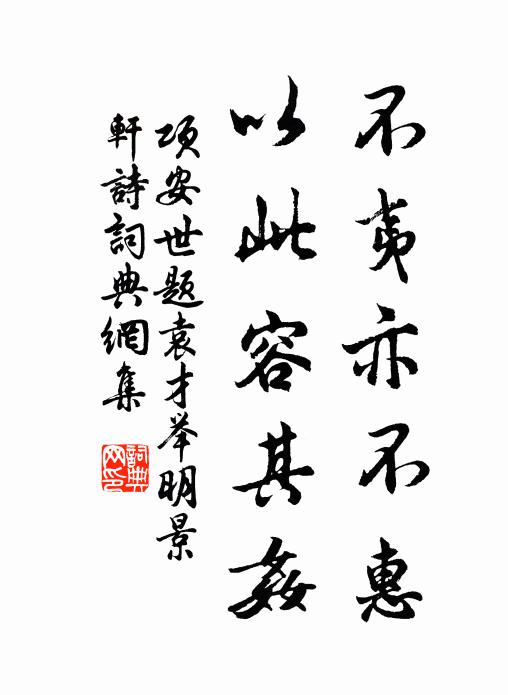 不夷亦不惠
以此容其姦
项安世题袁才举明景
軒詩詞典網集
詞典
网印